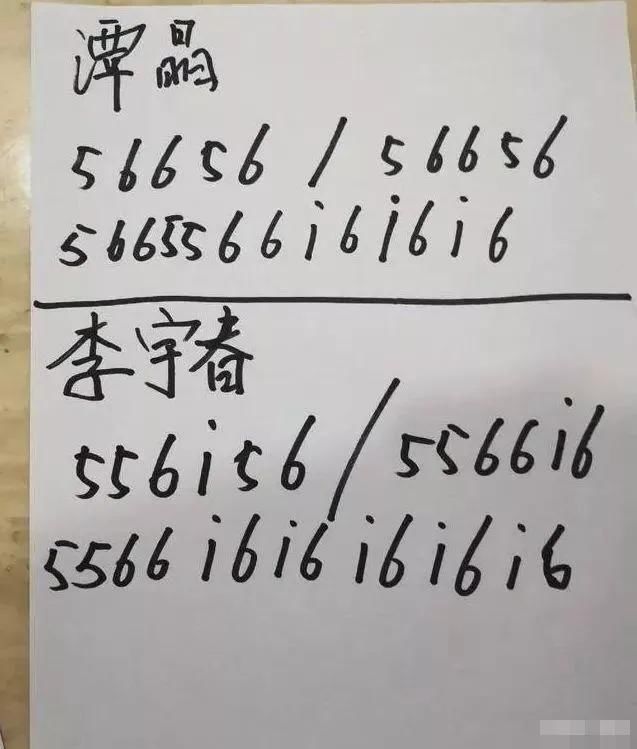 潭晶
56656 / 56656
5665566i6i6i6
李宇春
556i56 / 5566i6
5566i6i6i6i6i6